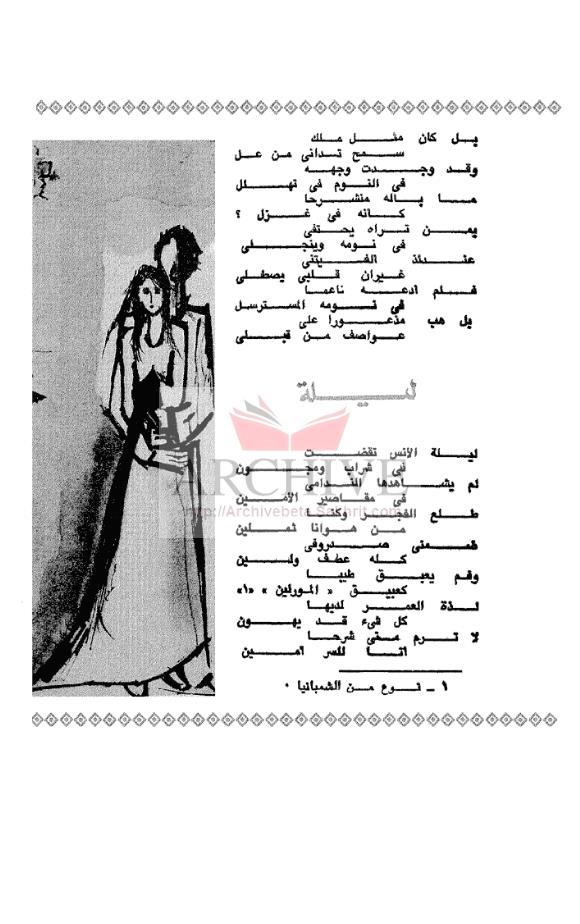 بل كان مثل ملك
سمح تدانى من عل
وقد وجدت وجهه
فى النوم فى تهلل
ما باله منشرحا
كانه فى غزل ؟
بمن تراه يحتفى
فى نومه وينجلى
عندئذ الفيتنى
غيران قلبى يصطلى
فلم ادعه ناعما
فى نومه المسترسل
بل هب مذعورا على
عواصف من قبلى
ليلة
ليلة الانس تقضت
فى شراب ومجون
لم يشاهدها الندامى
فى مقاصير الامين
طلع الفجر وكنا
من هوانا ثملين
ضمنى صدر وفى
كله عطف ولين
وفم يعبق طيبا
كعبيق « المورلين » «١»
لذة العمر لديها
كل شىء قد يهون
لا ترم منى شرحا
اننا للسر امين
١ ـ نوع من الشمبانيا ٠
ARCHIVE
http://Archivebeta.Sakhrit.com